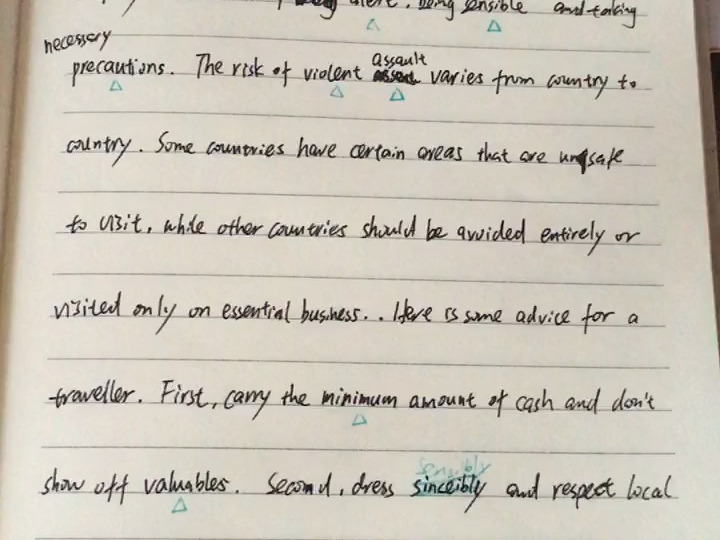 alert, being sensible and taking
necessary
precautions. The risk of violent assault varies from country to
country. Some countries have certain areas that are unsafe
to visit, while other countries should be avoided entirely or
visited only on essential business.. Here is some advice for a
traveller. First, carry the minimum amount of cash and don't
sensibly
show off valuables. Second, dress sinceibly and respect local